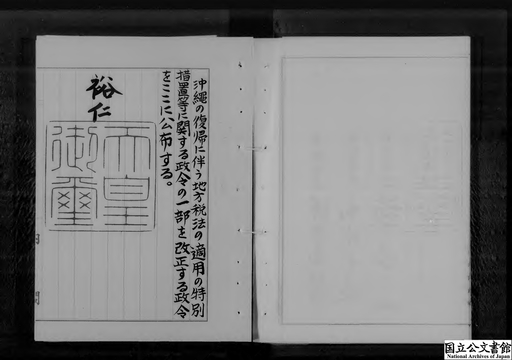 沖縄の復帰に伴う地方税法の適用の特別
措置等に関する政令の一部を改正する政令
をここに公布する。
裕仁
天皇
御璽
国立公文書館
National Archives of Japan